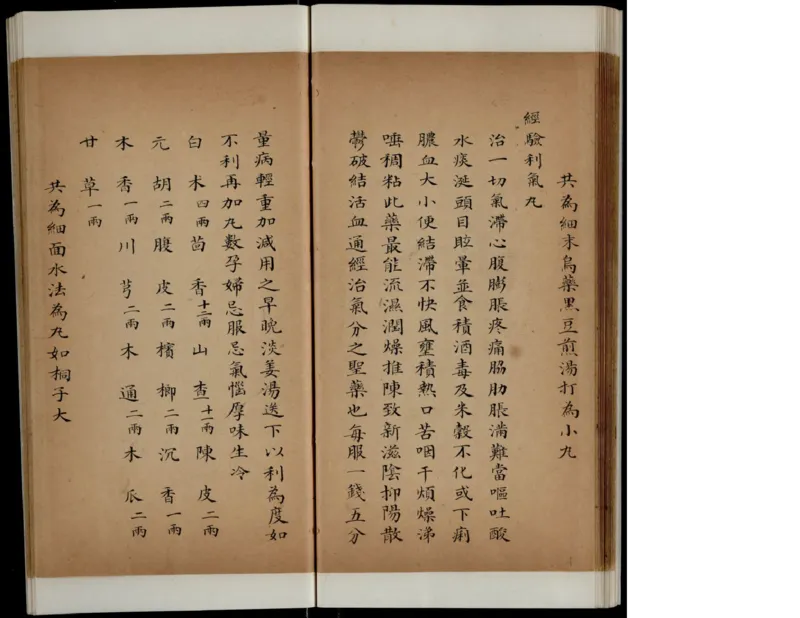 共為細末烏藥黑豆煎湯打為小九
經驗利氣九
治一切氣滯心腹膨脹疼痛脇肋脹滿難當嘔吐酸
水痰涎頭目眩暈並食積酒毒及米穀不化或下痢
膿血大小便結滯不快風壅積熱口苦咽干煩燥涕
唾稠粘此藥最能流濕潤燥推陳致新滋陰抑陽散
鬱破結活血通經治氣分之聖藥也每服一錢五分
量病輕重加減用之早晚淡姜湯送下以利為度如
不利再加九數孕婦忌服忌氣惱厚味生冷
白术四兩 茴香十二兩 山查十一兩 陳皮二兩
元胡二兩 腹皮二兩 檳榔二兩 沉香一兩
木香一兩 川芎二兩 木通二兩 木瓜二兩
甘草一兩
共為細面水法為九如桐子大